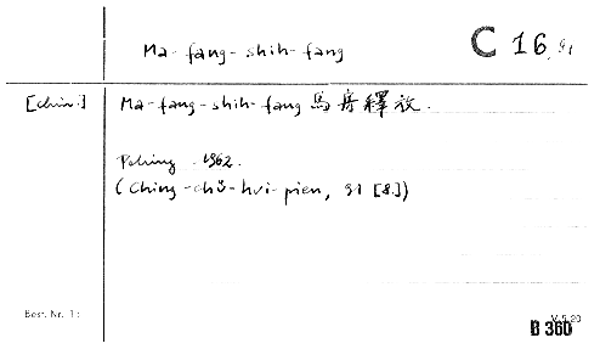 Ma-fang-shih-fang
C 16, 91
[chin.]
Ma-fang-shih-fang 馬房釋放.
Peking 1962.
(Ching-chü-hui-pien, 91 [8.])
Best. Nr. 1:
V 5 20
B 360